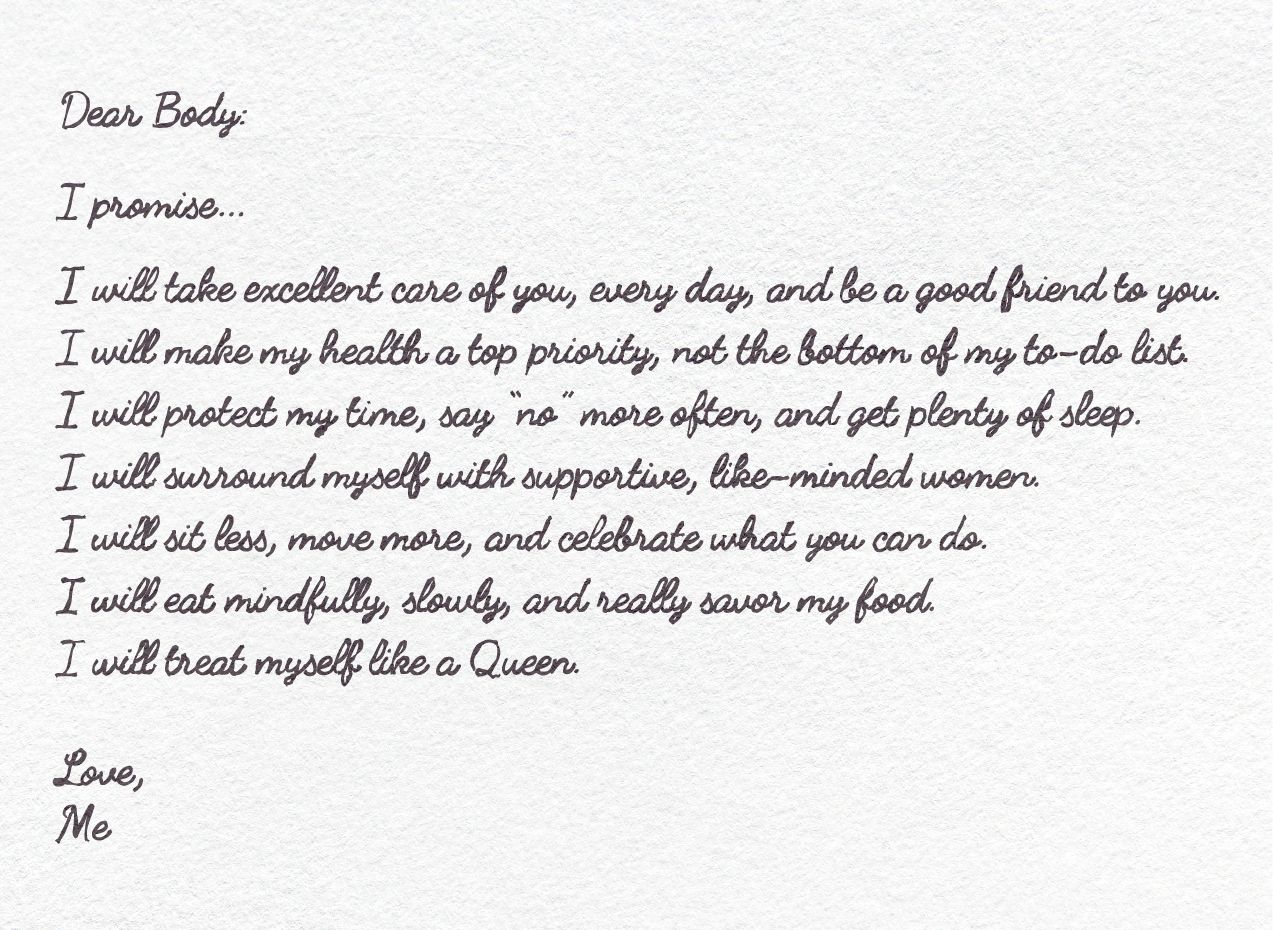 Dear Body:
I promise...
I will take excellent care of you, every day, and be a good friend to you.
I will make my health a top priority, not the bottom of my to-do list.
I will protect my time, say "no" more often, and get plenty of sleep.
I will surround myself with supportive, like-minded women.
I will sit less, move more, and celebrate what you can do.
I will eat mindfully, slowly, and really savor my food.
I will treat myself like a Queen.
Love,
Me